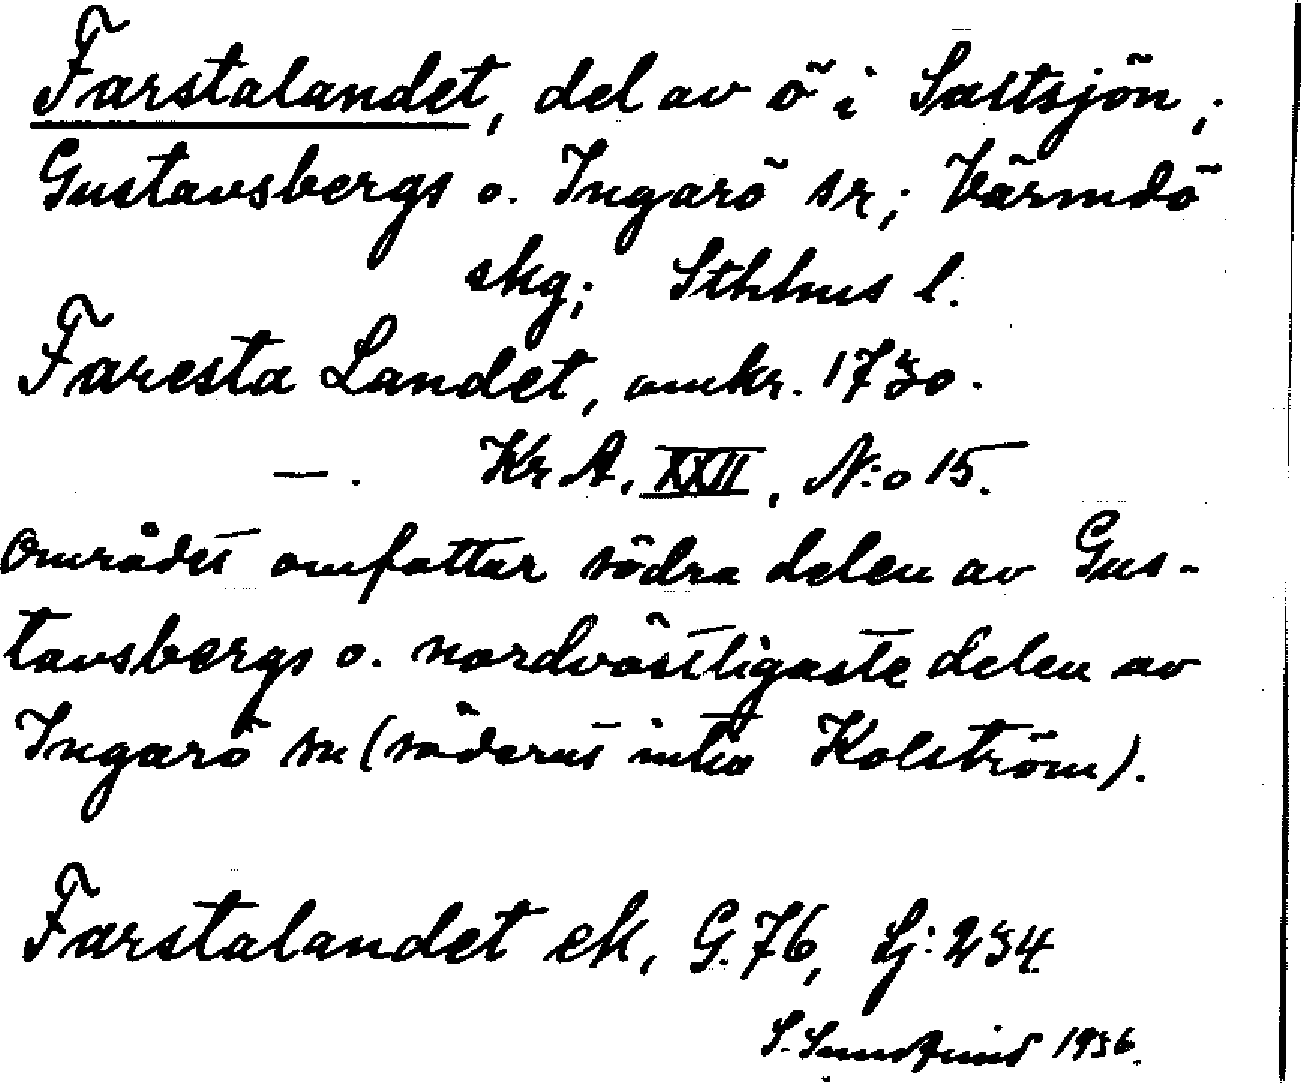 Farstalandet, del av ö i Saltsjön;
Gustavsbergs o. Ingarö sr; Värmdö
skg; Sthlms l.
Faresta Landet, omkr. 1730.
—. Kr A, XXII, N:o 15.
Området omfattar södra delen av Gus-
tavsbergs o. nordvästligaste delen av
Ingarö sn (söderut intill Kolström).
Farstalandet ek, G. 76, Lj: 234
S. 1936.